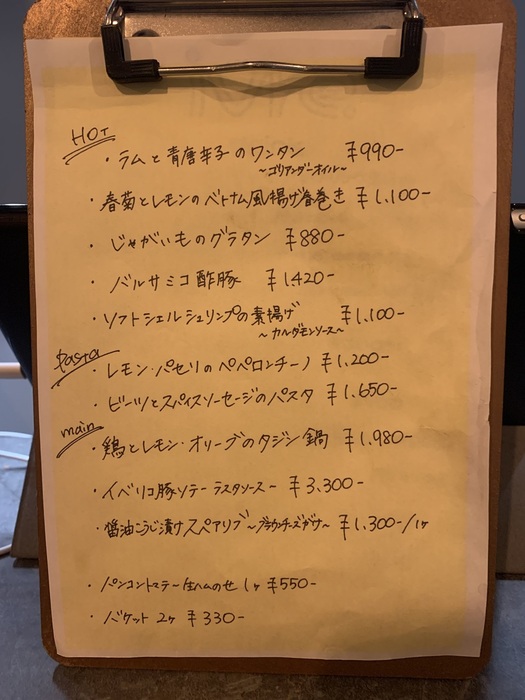 HOT
・ラムと青唐辛子のワンタン ¥990-
〜コリアンダーオイル〜
・春菊とレモンのベトナム風揚げ春巻き ¥1,100-
・じゃがいものグラタン ¥880-
・バルサミコ酢豚 ¥1,420-
・ソフトシェルシュリンプの素揚げ ¥1,100-
〜カルダモンソース〜
Pasta
・レモン・パセリのペペロンチーノ ¥1,200-
・ビーツとスパイスソーセージのパスタ ¥1,650-
main
・鶏とレモン・オリーブのタジン鍋 ¥1,980-
・イベリコ豚ソテーラスタソース〜 ¥3,300-
・醤油こうじ漬けスペアリブ〜ブラウンチーズがけ〜 ¥1,300-/1ヶ
・パンコントマテ〜生ハムのせ 1ヶ ¥550-
・バケット 2ヶ ¥330-